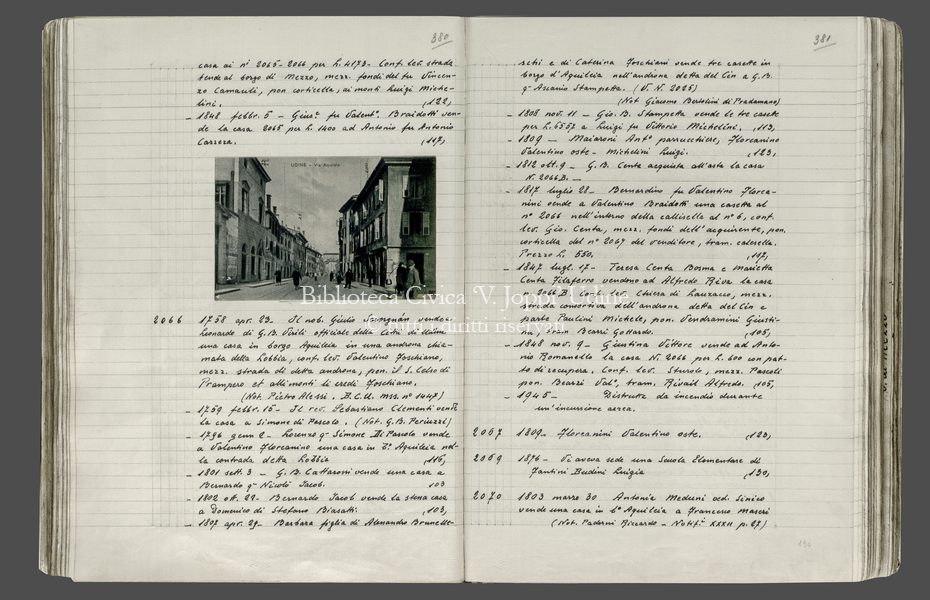 380
casa ai nⁱ 2065-2066 per L. 4173- Conf. lev. strada
tende al borgo di Mezzo, mezz. fondi del fu Vincen-
zo Camauli, pon corticella, ai monti Luigi Miche-
lini. (122,
- 1848 febbr. 5 - Gius.e fu Valent.o Braidotti ven-
de la casa 2065 per L. 1400 ad Antonio fu Antonio
Carrera. (117,
UDINE - Via Aquileia
2066 1758 apr. 23. Il nob. Giulio vende a
Leonardo di G.B. Viuli officiale della Città di Udine
una casa in borgo Aquileia in una androna chia-
mata della Lobbia, conf. lev. Valentino Foschiano,
mezz. strada di detta androna, pon. il S. Celso di
Prampero et alli monti li eredi Foschiano.
(Not. Pietro Alessi. B.C.U. mss. n° 1447)
- 1759 febbr. 15 - Il rev. Sebastiano Clementi vende
la casa a Simone di Pascolo. (Not. G.B. Periuzzi)
- 1796 genn 2 - Lorenzo q- Simone Di Pascolo vende
a Valentino Florcanino una casa in b.° Aquileia nel-
la contrada detta Lobbia (116,
- 1801 sett. 3 - G.B. Cattaroni vende una casa a
Bernardo q- Nicolò Jacob. 103
- 1802 ott. 22- Bernardo Jacob vende la stessa casa
a Domenico di Stefano Biasatti. (103,
- 1807 apr. 29- Barbara figlia di Alessandro Brunelle-
381
schi e di Caterina Foschiani vende tre casette in
borgo d'Aquileia nell'androna detta del Cin a G.B.
q- Ascanio Stampetta. (V. N. 2025)
(Not Giacomo Bertolini di Pradamano)
- 1808 nov. 11 - Gio. B. Stampetta vende le tre casette
per L. 6557 a Luigi fu Vittorio Michelini. (113,
- 1809 - Maiaroni Ant° parrucchiere, Florcanino
Valentino oste - Michelini Luigi. (123,
- 1812 ott. 9 - G.B. Centa acquista all'asta la casa
N. 2066 B. -
- 1817 luglio 28 - Bernardino fu Valentino Florca-
nini vende a Valentino Braidotti una casetta al
n° 2066 nell'interno della callisella al n° 6, conf.
lev. Gio. Centa, mezz. fondi dell'acquirente, pon.
corticella del n° 2067 del venditore, tram. calesella.
Prezzo L. 550. (117,
- 1847 lugl. 17 - Teresa Centa Bosma e Marietta
Centa Filaferro vendono ad Alfredo Riva la casa
n. 2066 B. Conf. lev. Chiesa di Lauzacco, mezz.
strada consortiva dell'androna detta del Cin e
parte Paulini Michele, pon. Vendramini Giusti-
na, tram Bearzi Gottardo. (105,
- 1848 nov. 9 - Giustina Vittore vende ad Anto-
nio Romanello la casa N. 2066 per L. 600 con pat-
to di recupera. Conf. lev. Sturolo, mezz. Pascoli
pon. Bearzi Val°, tram. Rivail Alfredo. (105,
- 1945 - Distrutta da incendio durante
un'incursione aerea.
2067 1809 - Florcanini Valentino oste. (123,
2069 1876 - Vi aveva sede una Scuola Elementare di
Fantini Budini Luigia (130,
2070 1803 marzo 30 Antonia Meduni ved. Sinico
vende una casa in b° Aquileia a Francesco Masèri
(Not. Paderni Riccardo - Notif.i XXXII p. 27)
Biblioteca Civica "V. Joppi" Udine
© tutti i diritti riservati